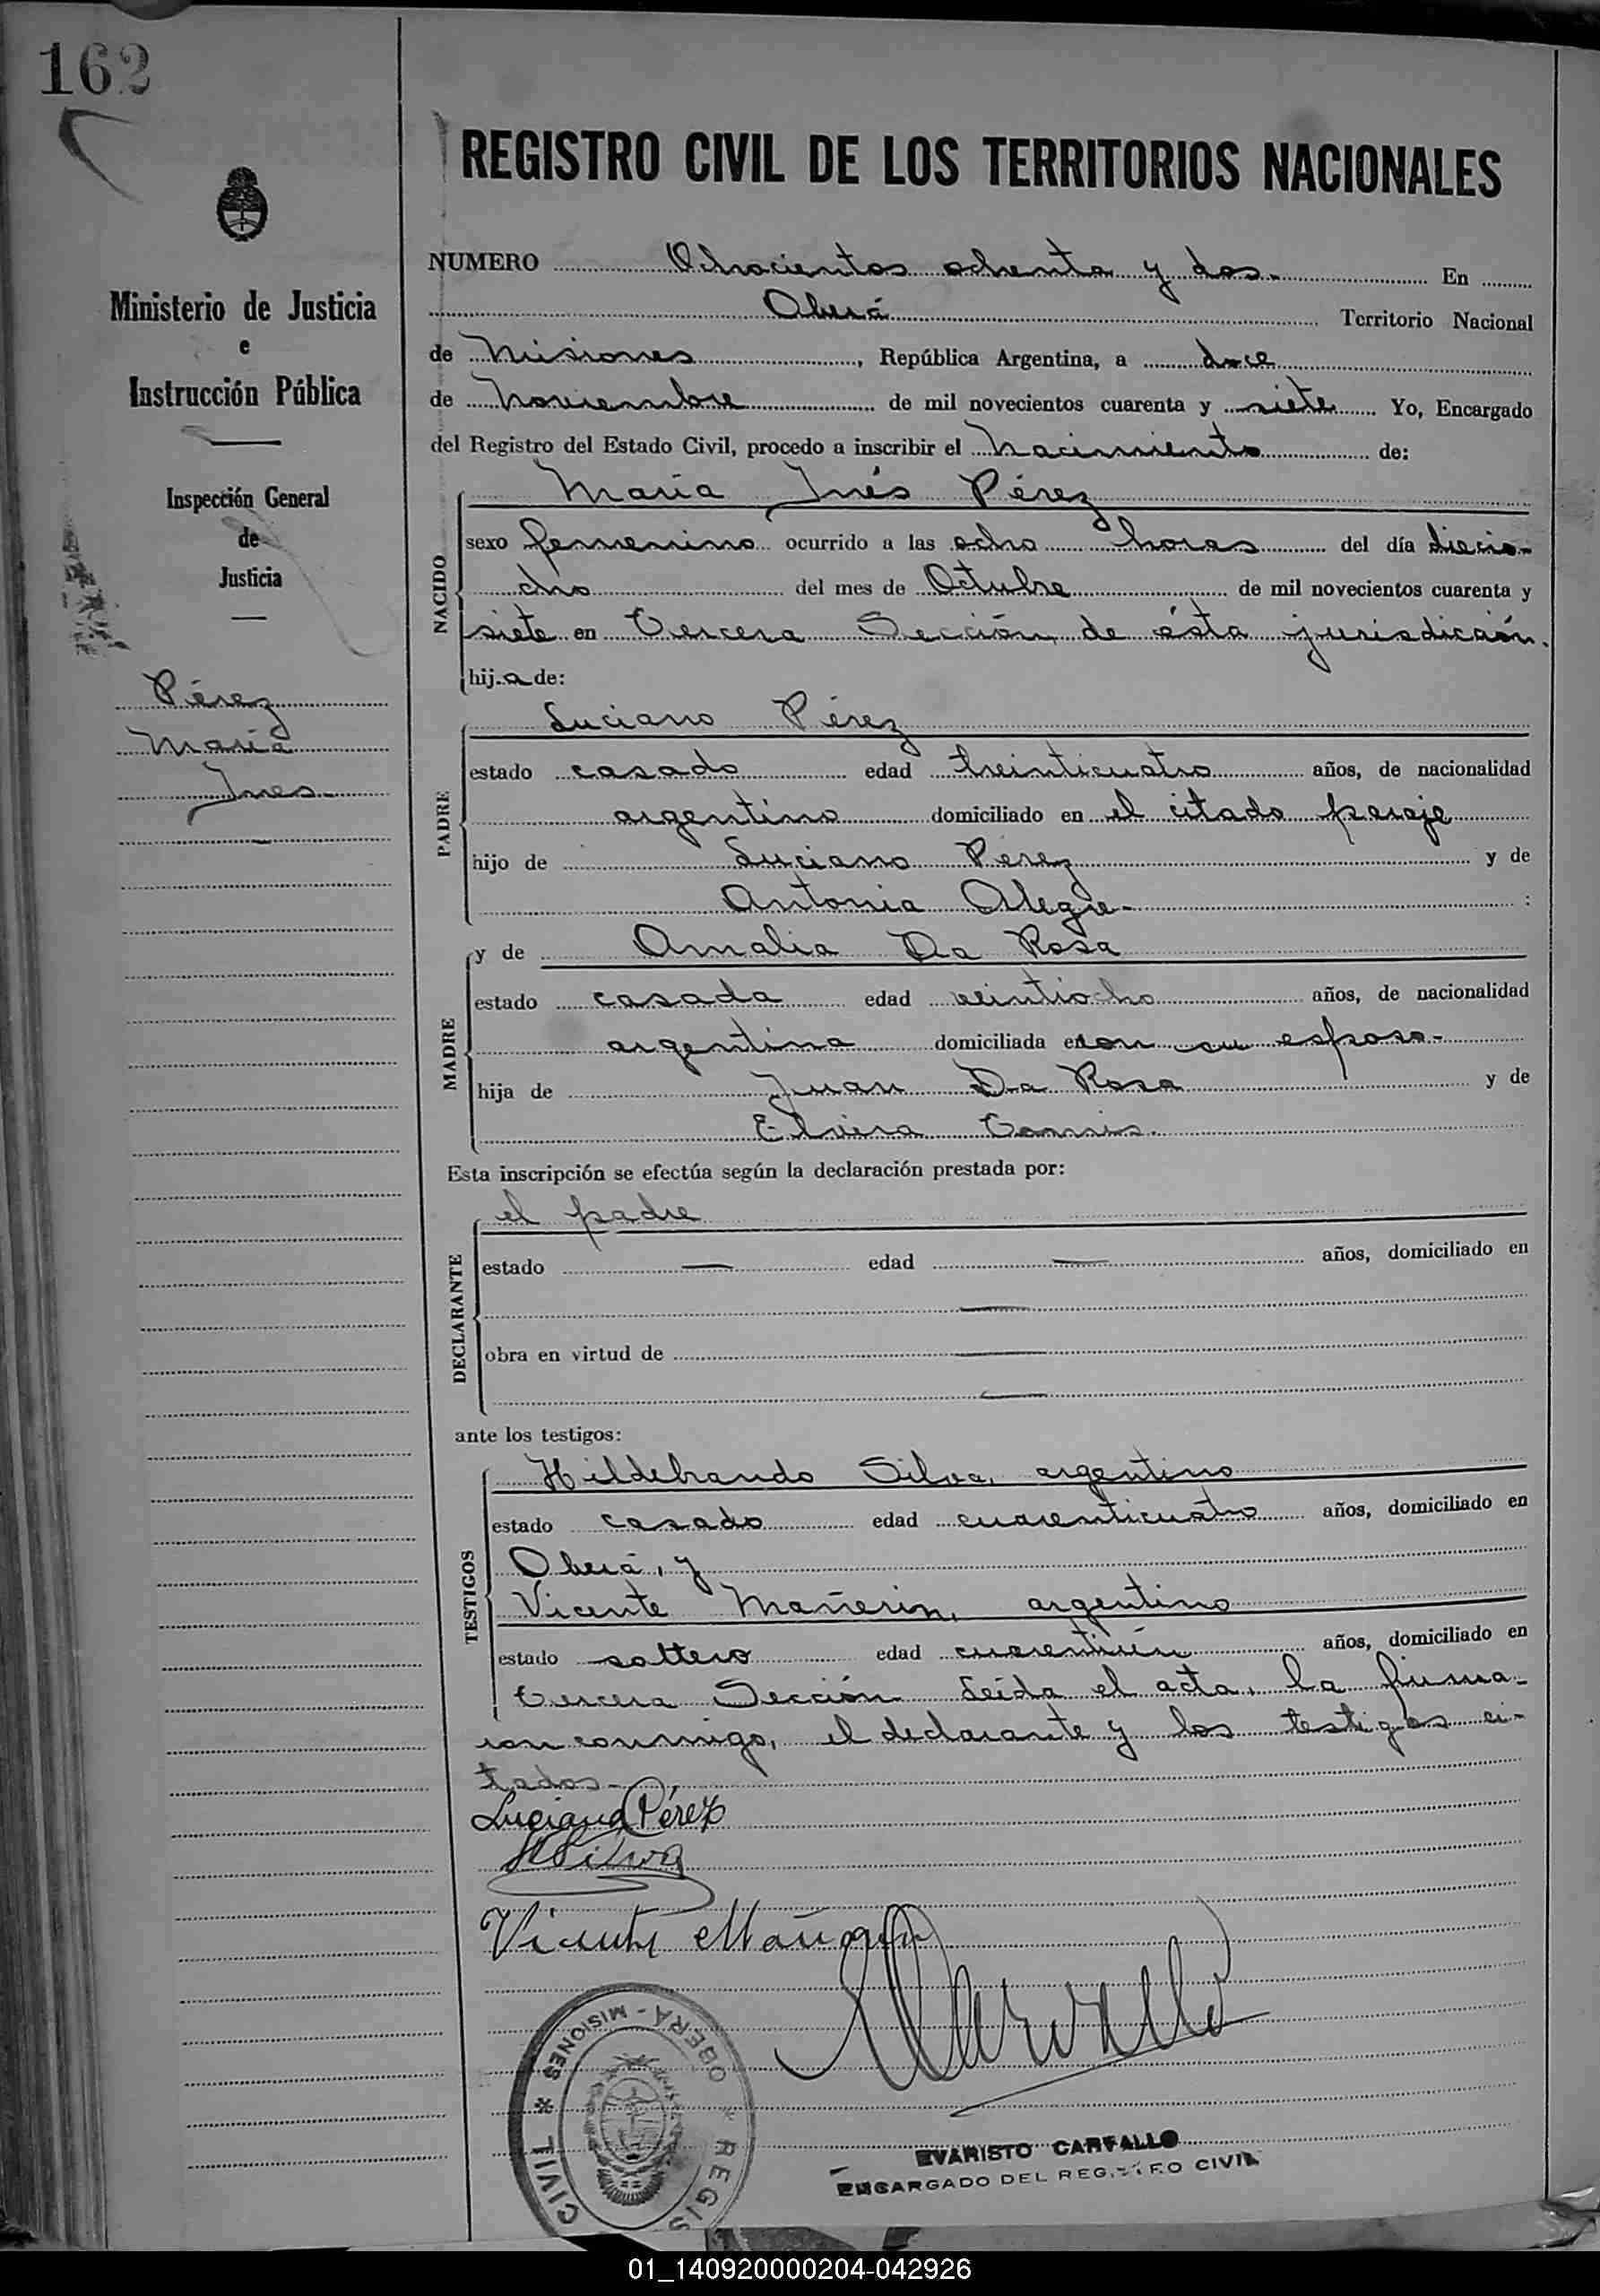 162
REGISTRO CIVIL DE LOS TERRITORIOS NACIONALES
Ministerio de Justicia
e
Instrucción Pública
Inspección General
de
Justicia
Pérez
María
Ines.
NUMERO Ochocientos ochenta y dos. En
Oberá Territorio Nacional
de Misiones, República Argentina, a doce
de Noviembre de mil novecientos cuarenta y siete Yo, Encargado
del Registro del Estado Civil, procedo a inscribir el Nacimiento de:
NACIDO
María Inés Pérez
sexo femenino ocurrido a las ocho horas del día diecio-
cho del mes de Octubre de mil novecientos cuarenta y
siete en Tercera Sección, de ésta jurisdicción.
hija de:
PADRE
Luciano Pérez
estado casado edad treinticuatro años, de nacionalidad
argentino domiciliado en el citado paraje
hijo de Luciano Perez y de
Antonia Alegre- :
MADRE
y de Amalia Da Rosa
estado casada edad veintiocho años, de nacionalidad
argentina domiciliada con su esposo-
hija de Juan Da Rosa y de
Elvira
Esta inscripción se efectúa según la declaración prestada por:
DECLARANTE
el padre
estado — edad — años, domiciliado en
—
obra en virtud de —
—
ante los testigos:
TESTIGOS
Hildebrando Silva, argentino
estado casado edad cuarenticuatro años, domiciliado en
Oberá, y
Vicente Mañerin, argentino
estado soltero edad cuarentiún años, domiciliado en
tercera Sección Leída el acta, la firma-
ron conmigo, el declarante y los testigos ci-
tados-
Luciano Pérez
HSilva
Vicente Mañerin
OBERÁ - MISIONES * REGIS CIVIL *
EVARISTO CARVALLO
ENCARGADO DEL REGISTRO CIVIL
01_140920000204-042926